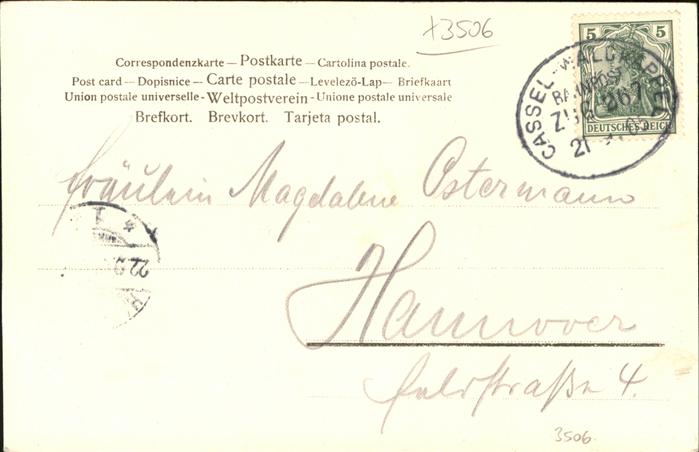 x3506
Correspondenzkarte — Postkarte — Cartolina postale.
Post card — Dopisnice — Carte postale — Levelező-Lap — Briefkaart
Union postale universelle - Weltpostverein - Unione postale universale
Brefkort. Brevkort. Tarjeta postal.
5 5
DEUTSCHES REICH
CASSEL-WALDKAPPEL
BAHNPOST
ZUG 867
21
Fräulein Magdalene Ostermann
Hannover
Feldstraße 4.
22.
3506.